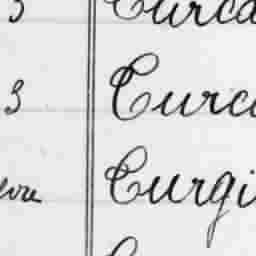 3 Curca
3 Curc
Curgi